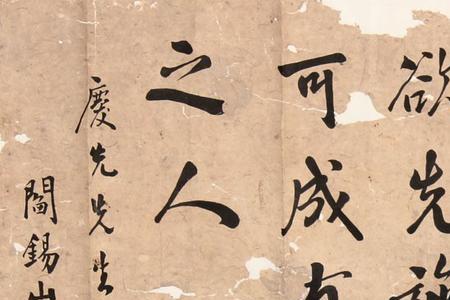 欲先
可成
之人
慶先先生
閻錫